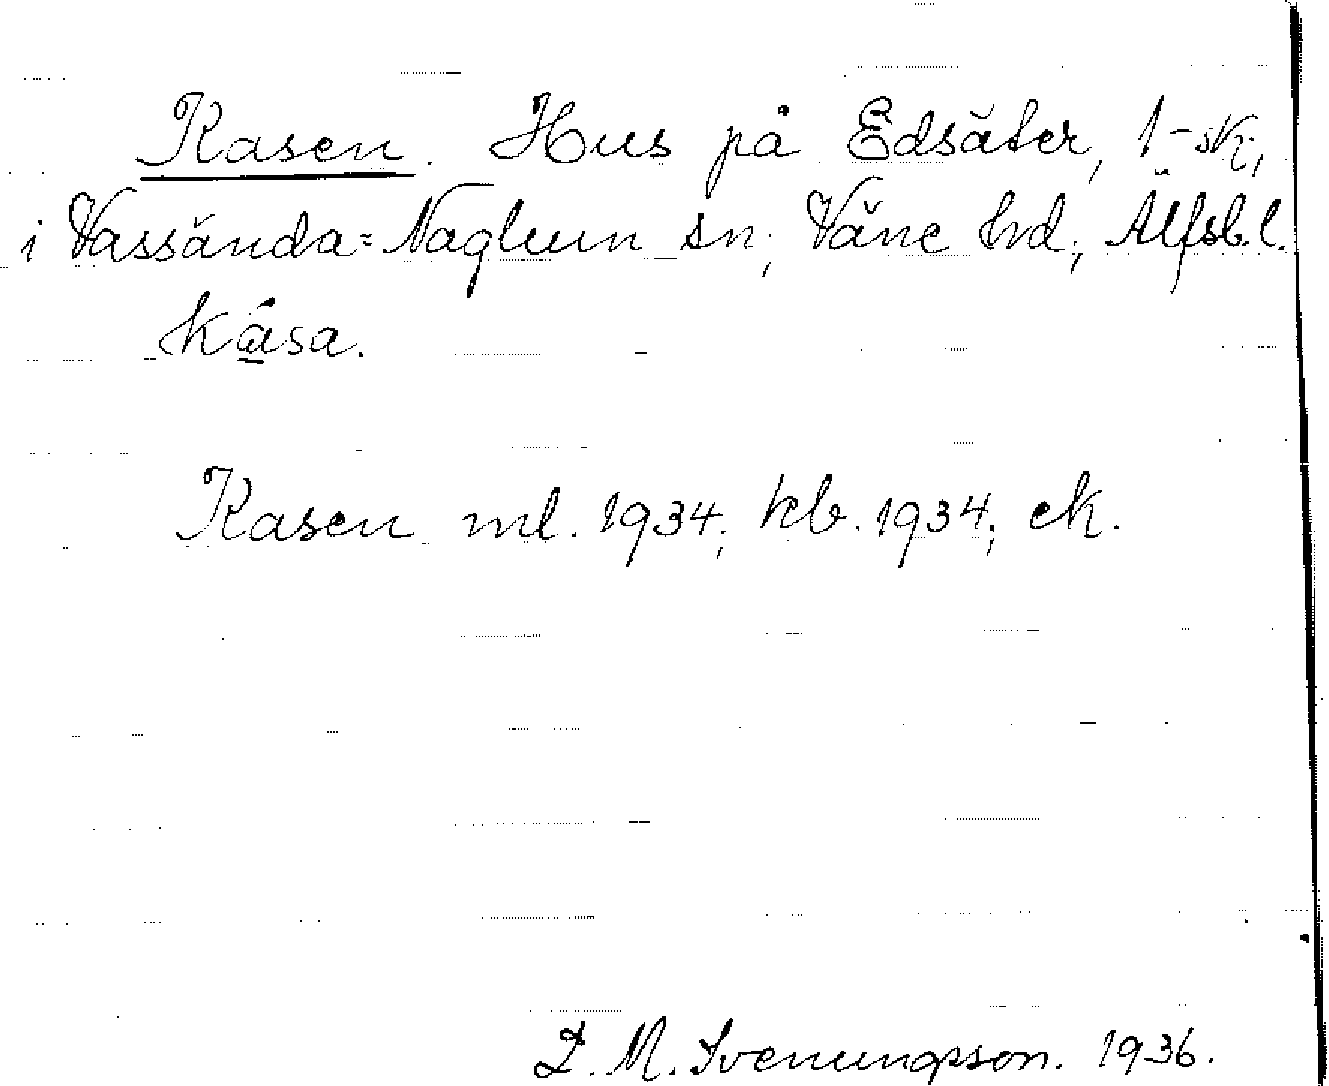 Kasen. Hus på Edsäter, 1-sk;,
i Vassända=Naglum sn; Väne hrd; Älfsb.l.
kása.
Kasen ml. 1934; kb. 1934; ek.
D. M. Svenungsson. 1936.